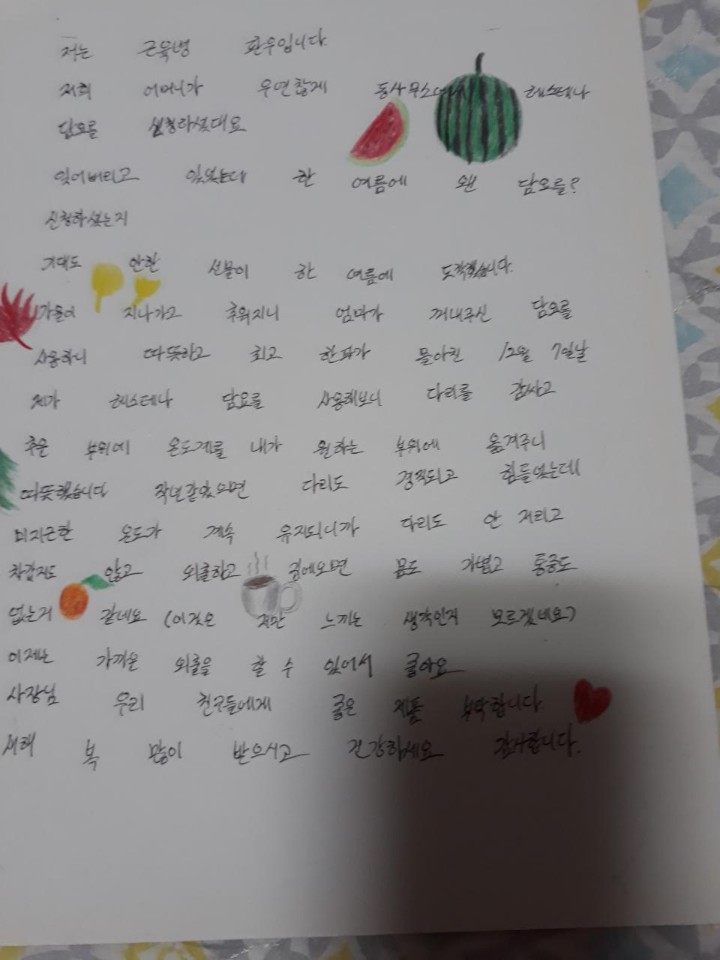 저는 근육병 환우입니다.
저희 어머니가 우연찮게 동사무소에서 헤스테나
담요를 신청하셨대요
잊어버리고 있었는데 한 여름에 왠 담요를?
신청하셨는지
기대도 안한 선물이 한 여름에 도착했습니다.
가을이 지나가고 추워지니 엄마가 꺼내주신 담요를
사용하니 따뜻하고 최고 한파가 몰아친 12월 7일날
제가 헤스테나 담요를 사용해보니 다리를 감싸고
추운 부위에 온도계를 내가 원하는 부위에 옮겨주니
따뜻했습니다 작년같았으면 다리도 경직되고 힘들었는데
미지근한 온도가 계속 유지되니까 다리도 안 저리고
차갑지도 않고 외출하고 집에오면 몸도 가볍고 통증도
없는거 같네요 (이것은 저만 느끼는 생각인지 모르겠네요)
이제는 가까운 외출을 할 수 있어서 좋아요
사장님 우리 친구들에게 좋은 제품 부탁합니다.
새해 복 많이 받으시고 건강하세요 감사합니다.